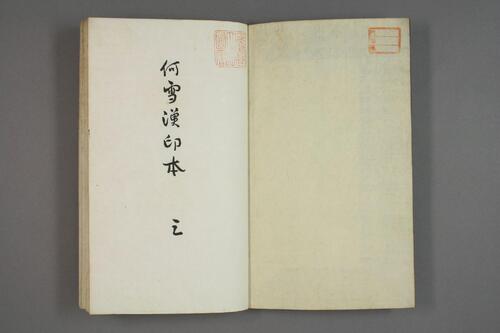 何雪漁印本 三